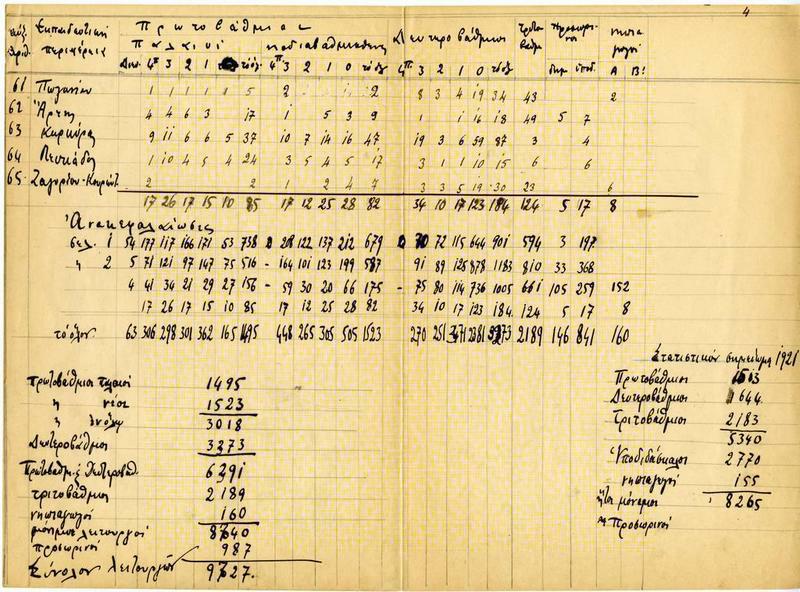 4
αὐξ. Ἐκπαιδευτικὴ Πρωτοβάθμιοι Δευτεροβάθμιοι τριτοβάθμ προσωρινοὶ νηπιαγωγοὶ
ἀριθ. περιφέρεια Παλαιοὶ
4ης 3 2 1 4ης 3 2 1 0 4ης 3 2 1 0 δημ ὑποδ. Α Β!
61 Πωγωνίου 1 1 1 1 1 5 2 2 8 3 4 19 34 43 2
62 Ἄρτης 4 4 6 3 17 1 5 3 9 1 1 16 18 49 5 7
63 Κερκύρας 9 11 6 6 5 37 10 7 14 16 47 19 3 6 59 87 3 4
64 Λευκάδος 1 10 4 5 4 24 3 5 4 5 17 3 1 1 10 15 6 6
65 Ζαγορίου-Κουρέντ. 2 2 1 2 4 7 3 3 5 19 30 23 6
17 26 17 15 10 85 17 12 25 28 82 34 10 17 123 184 124 5 17 8
Ἀνακεφαλαίωσις
σελ. 1 54 177 117 166 171 53 738 208 122 137 212 679 70 72 115 644 901 594 3 197
" 2 5 71 121 97 147 75 516 - 164 101 123 199 587 91 89 125 878 1183 810 33 368
4 41 34 21 29 27 156 - 59 30 20 66 175 - 75 80 114 736 1005 661 105 259 152
17 26 17 15 10 85 17 12 25 28 82 34 10 17 123 184 124 5 17 8
τὸ ὅλον 63 306 298 301 362 165 1495 448 265 305 505 1523 270 251 2189 146 841 160
Στατιστικὸν σημείωμα 1921
Πρωτοβάθμιοι παλαιοὶ 1495
" νέοι 1523
" ἐν ὅλῳ 3018
Δευτεροβάθμιοι 3273
Πρωτοβάθμ. & Δευτεροβάθ. 6291
τριτοβάθμιοι 2189
νηπιαγωγοί 160
μόνιμοι λειτουργοὶ 8640
προσωρινοὶ 987
Σύνολον λειτουργῶν 9627.
Πρωτοβάθμιοι
Δευτεροβάθμιοι 644
Τριτοβάθμιοι 2183
5340
Ὑποδιδάσκαλοι 2770
νηπιαγωγοὶ 155
ἤτοι μόνιμοι 8265
Προσωρινοὶ